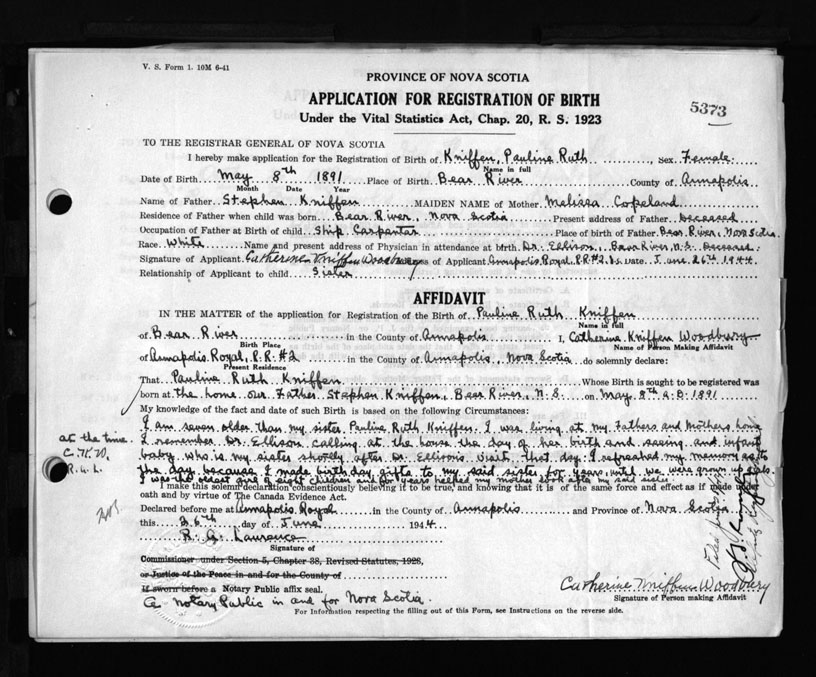 V. S. Form 1. 10M 6-41
PROVINCE OF NOVA SCOTIA
APPLICATION FOR REGISTRATION OF BIRTH
5373
Under the Vital Statistics Act, Chap. 20, R. S. 1923
TO THE REGISTRAR GENERAL OF NOVA SCOTIA
I hereby make application for the Registration of Birth of Kniffen, Pauline Ruth, Sex Female.
Name in full
Date of Birth May 8th 1891 Place of Birth Bear River County of Annapolis
Month Date Year
Name of Father Stephen Kniffen MAIDEN NAME of Mother Melissa Copeland
Residence of Father when child was born Bear River, Nova Scotia Present address of Father Deceased
Occupation of Father at Birth of child Ship Carpentar Place of birth of Father Bear River, Nova Scotia.
Race White Name and present address of Physician in attendance at birth Dr. Ellison, Bear River, N.S. Deceased.
Signature of Applicant Catherine Kniffen Woodbury of Applicant Annapolis Royal, R.R. #2. Date June 26th 1944
Relationship of Applicant to child Sister
AFFIDAVIT
IN THE MATTER of the application for Registration of the Birth of Pauline Ruth Kniffen
Name in full
of Bear River in the County of Annapolis I, Catherine Kniffen Woodbury
Birth Place Name of Person Making Affidavit
of Annapolis Royal, R.R. #2 in the County of Annapolis, Nova Scotia do solemnly declare:
Present Residence
That Pauline Ruth Kniffen Whose Birth is sought to be registered was
born at the home our Father Stephen Kniffen, Bear River, N.S on May 8th A.D. 1891
My knowledge of the fact and date of such Birth is based on the following Circumstances:
I am seven older than my sister Pauline Ruth Kniffen. I was living at my Fathers and Mothers home
at the time.
C.K.W.
R.G.L.
I remember Dr. Ellison calling at the house the day of her birth and seeing and infant
baby who is my sister shortly after Dr. Ellison's visit that day. I refreshed my memory as to
the day because I made birthday gifts to my said sister for years until we were grown up
I was the oldest girl of eight children and for years helped my mother look after my said sister.
I make this solemn declaration conscientiously believing it to be true, and knowing that it is of the same force and effect as if made under
oath and by virtue of The Canada Evidence Act.
Declared before me at Annapolis Royal in the County of Annapolis and Province of Nova Scotia
this 26th day of June 1944
R. G. Laurence
Signature of
Commissioner under Section 5, Chapter 38, Revised Statutes, 1923,
or Justice of the Peace in and for the County of
If sworn before a Notary Public affix seal.
A Notary Public in and for Nova Scotia.
Catherine Kniffen Woodbury
Signature of Person making Affidavit
For Information respecting the filling out of this Form, see Instructions on the reverse side.